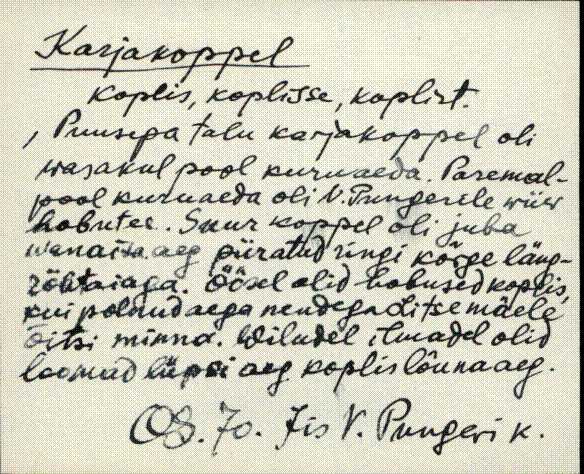 Karjakoppel
koplis, koplisse, koplist.
, Puusepa talu karjakoppel oli
wasakul pool kuruaeda. Paremal-
pool kuruaeda oli V. Pungerile wiiw
hobutee. Suur koppel oli juba
wanaisa aeg piiratud ringi kõrge läng-
rõhtaiaga. Öösel olid hobused koplis,
kui polnud aega nendega Litsemäele
õitsi minna. Wiludel ilmadel olid
loomad lüpsi aeg koplis lõunaaeg.
70. Jis V. Pungeri k.